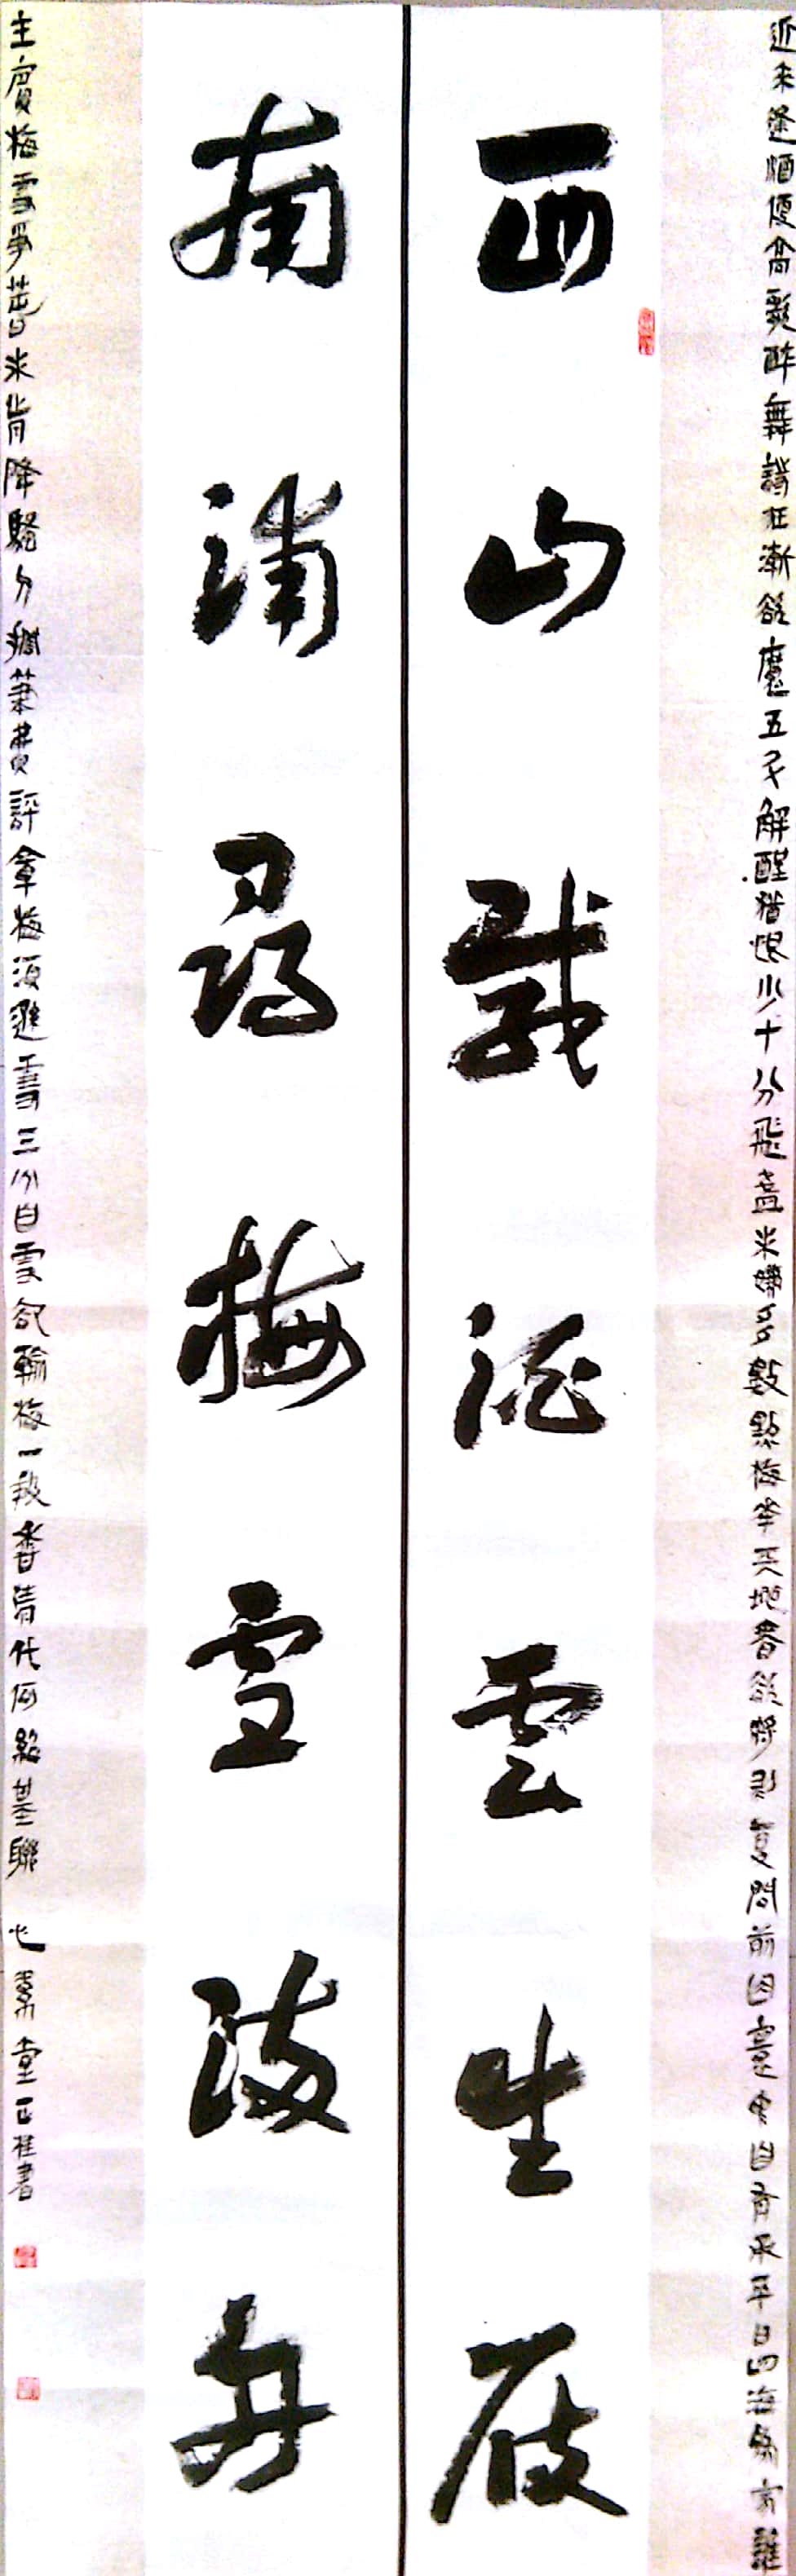 近來逢酒便高歌醉舞詩狂漸欲魔五斗解酲猶恨少十分飛盞未嫌多數點梅花天地春欲將剝復問前因寰中自有承平日四海為家誰
西山載酒雲生屐
南浦尋梅雪滿舟
主賓梅雪爭春未肯降騷人擱筆費評章梅須遜雪三分白雪卻輸梅一段香清代何紹基聯 素堂正桂書